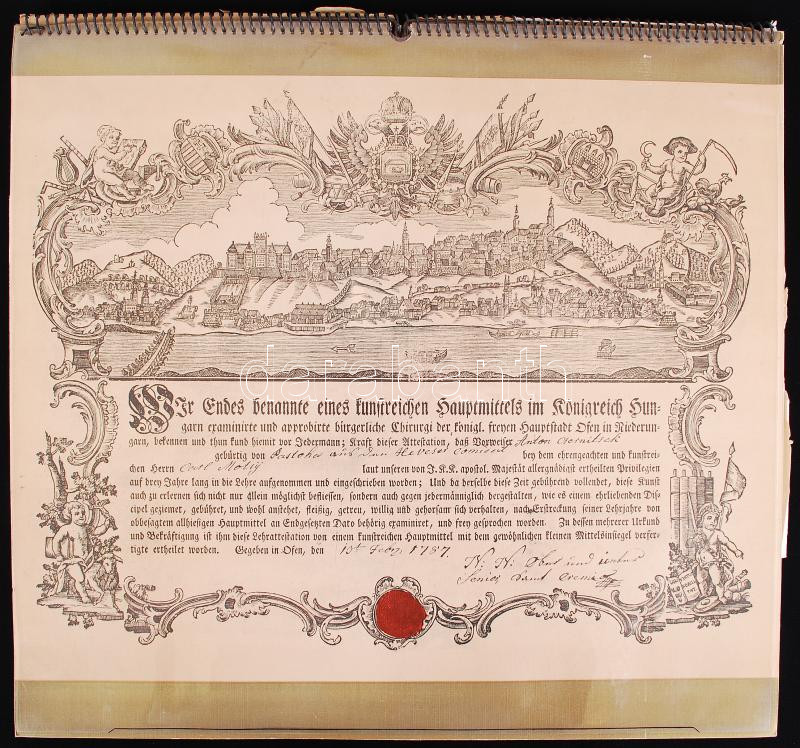 WIr Endes benannte eines kunstreichen Hauptmittels im Königreich Hun-
garn examinirte und approbirte bürgerliche Chirurgi der königl. freyen Hauptstadt Ofen in Niederun-
garn, bekennen und thun kund hiemit vor Jedermann; Kraft dieser Attestation, daß Vorweiser Anton
gebürtig von aus dem Heveser bey dem ehrengeachten und kunstrei-
chen Herrn Carl laut unseren von J.K.K. apostol. Majestät allergnädigst ertheilten Privilegien
auf drey Jahre lang in die Lehre aufgenommen und eingeschrieben worden; Und da derselbe diese Zeit gebührend vollendet, diese Kunst
auch zu erlernen sich nicht nur allein möglichst beflissen, sondern auch gegen jedermänniglich dergestalten, wie es einem ehrliebenden Dis-
cipel geziemet, gebühret, und wohl anstehet, fleißig, getreu, willig und gehorsam sich verhalten, nach Erstreckung seiner Lehrjahre von
obbesagten allhiesigen Hauptmittel an Endgesetzten Dato behörig examiniret, und frey gesprochen worden. Zu dessen mehrerer Urkund
und Bekräftigung ist ihm diese Lehrattestation von einem kunstreichen Hauptmittel mit dem gewöhnlichen kleinen Mitteleinsiegel verfer-
tigte ertheilet worden. Gegeben in Ofen, den 10t Febr. 1787.
N: N: Ober und
Senior
darabanth